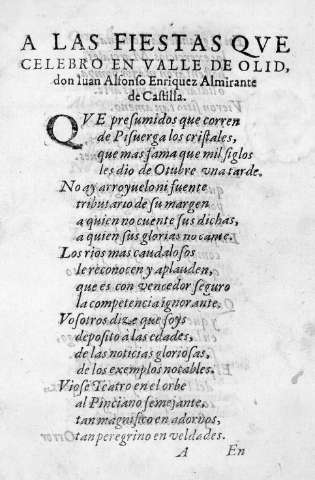 A LAS FIESTAS QVE
CELEBRO EN VALLE DE OLID,
don Iuan Alfonso Enriquez Almirante
de Castilla.
QVE presumidos que corren
de Pisuerga los cristales,
que mas fama que mil siglos
les dio de Otubre vna tarde.
No ay arroyuelo ni fuente
tributario de su margen
a quien no cuente sus dichas,
a quien sus glorias no cante.
Los rios mas caudalosos
le reconocen y aplauden,
que es con vencedor seguro
la competencia ignorante.
Vosotros dize que soys
deposito a las edades,
de las noticias gloriosas,
de los exemplos notables.
Viose Teatro en el orbe
al Pinciano semejante,
tan magnifico en adornos,
tan peregrino en veldades.
A En